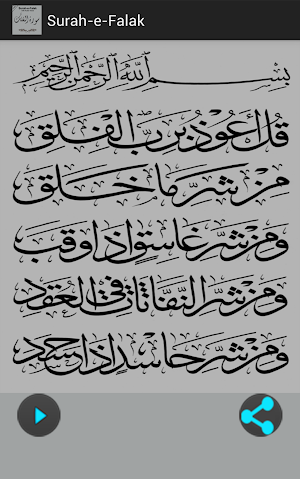 Surah-e-Falak
بسم الله الرحمن الرحيم
قل أعوذ برب الفلق
من شر ما خلق
ومن شر غاسق إذا وقب
ومن شر النفاثات في العقد
ومن شر حاسد إذا حسد